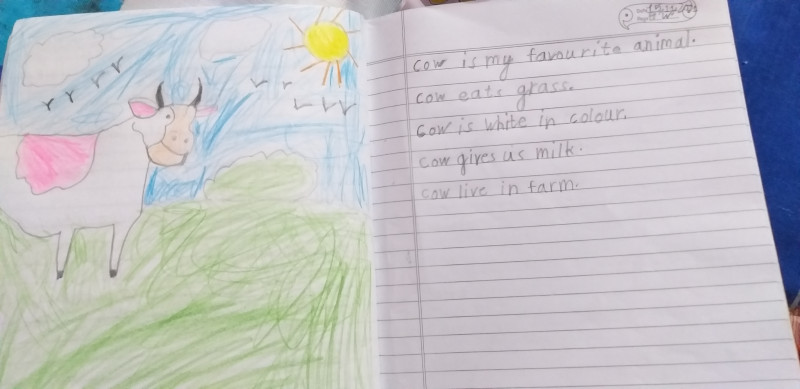 cow is my favourite animal.
cow eats grass.
Cow is white in colour.
cow gives us milk.
cow live in farm.